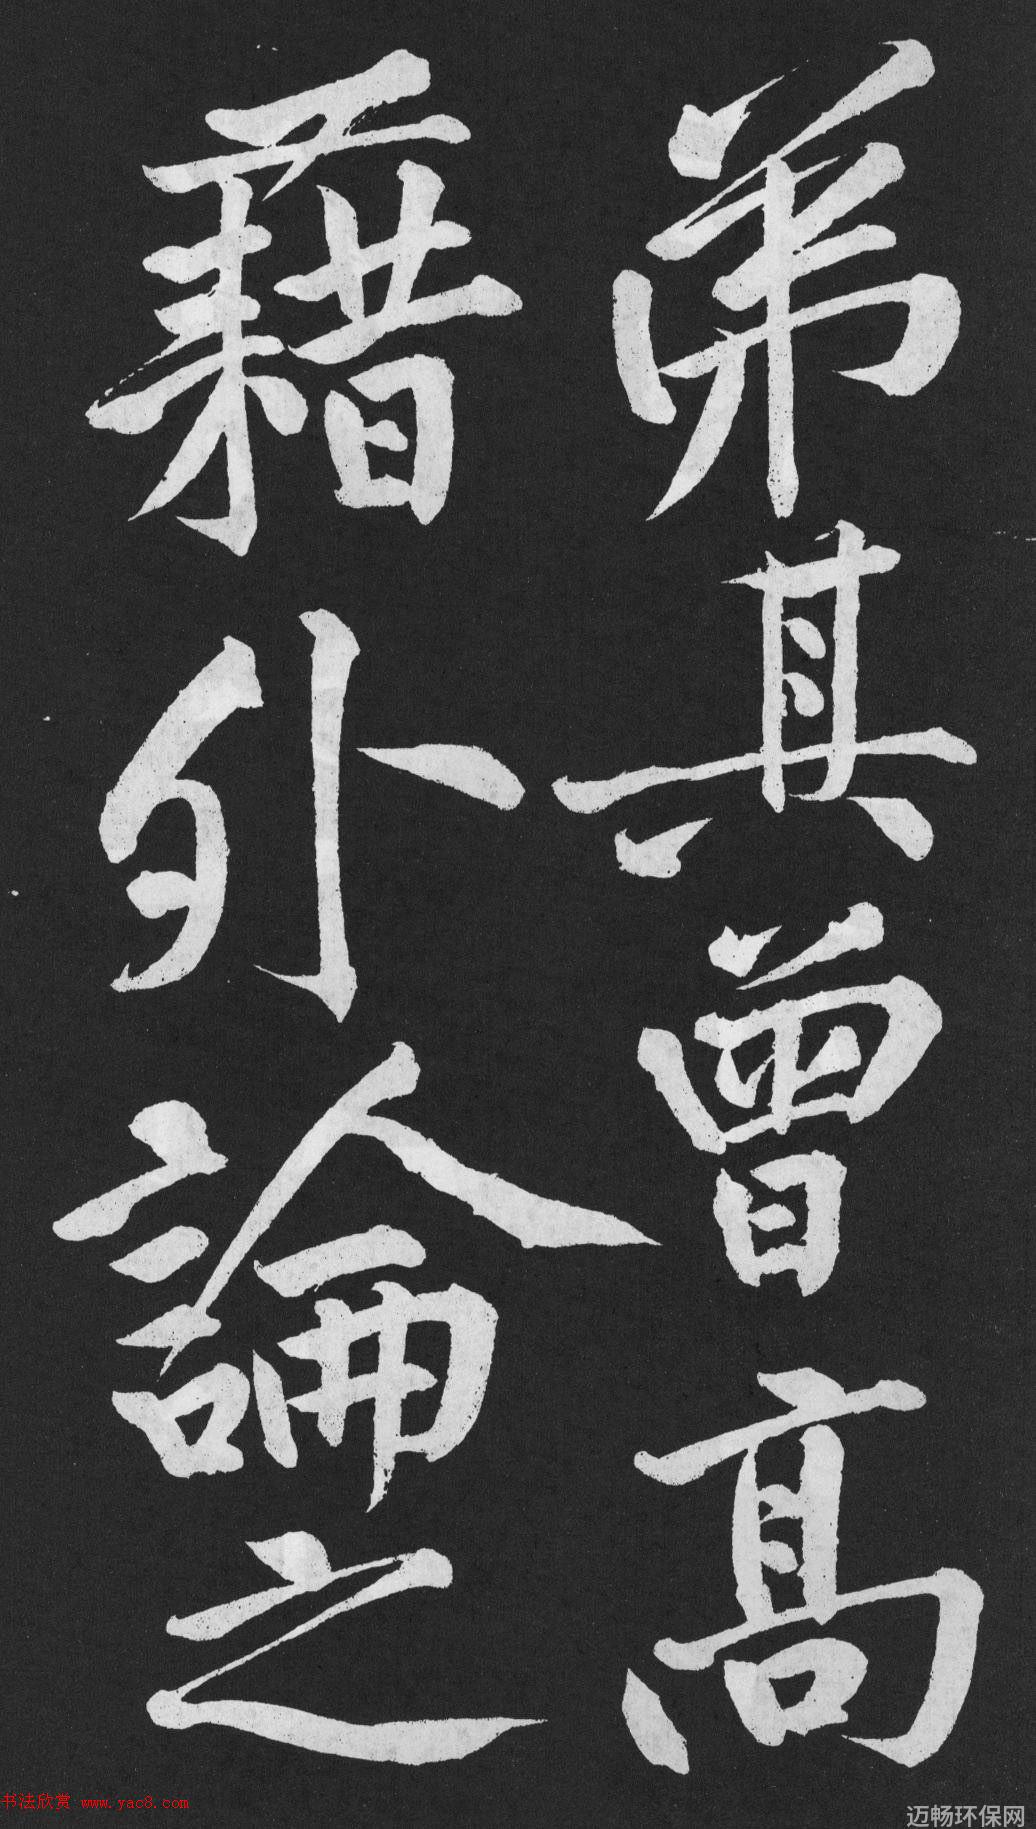 弟其曾高
藉外論之
书法欣赏 www.yac8.com
迈畅环保网